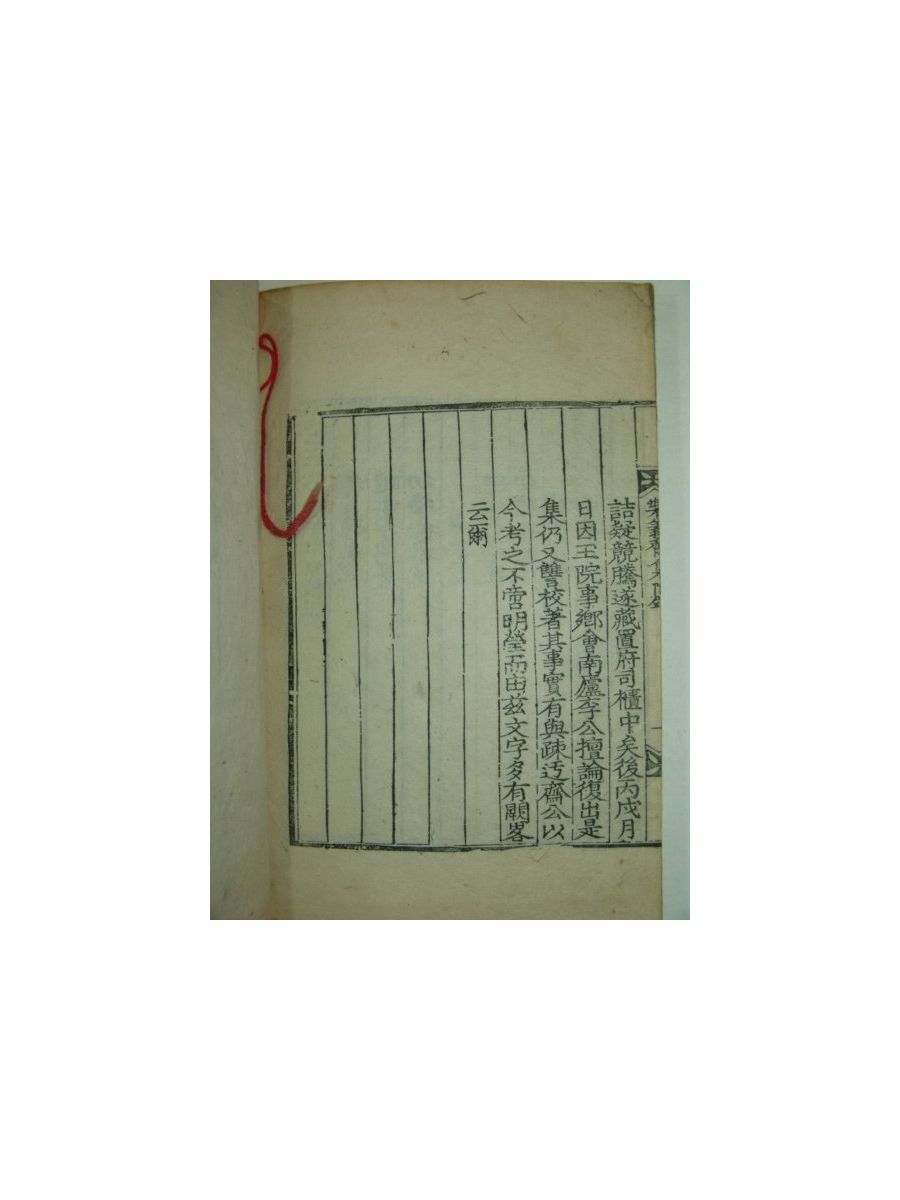 詰疑競騰遂藏置府司櫃中矣後丙戌月
日因王院事鄉會南廬李公擅論復出是
集仍又讐校著其事實有與疎迃齋公以
今考之不啻明瑩而由茲文字多有闕畧
云爾